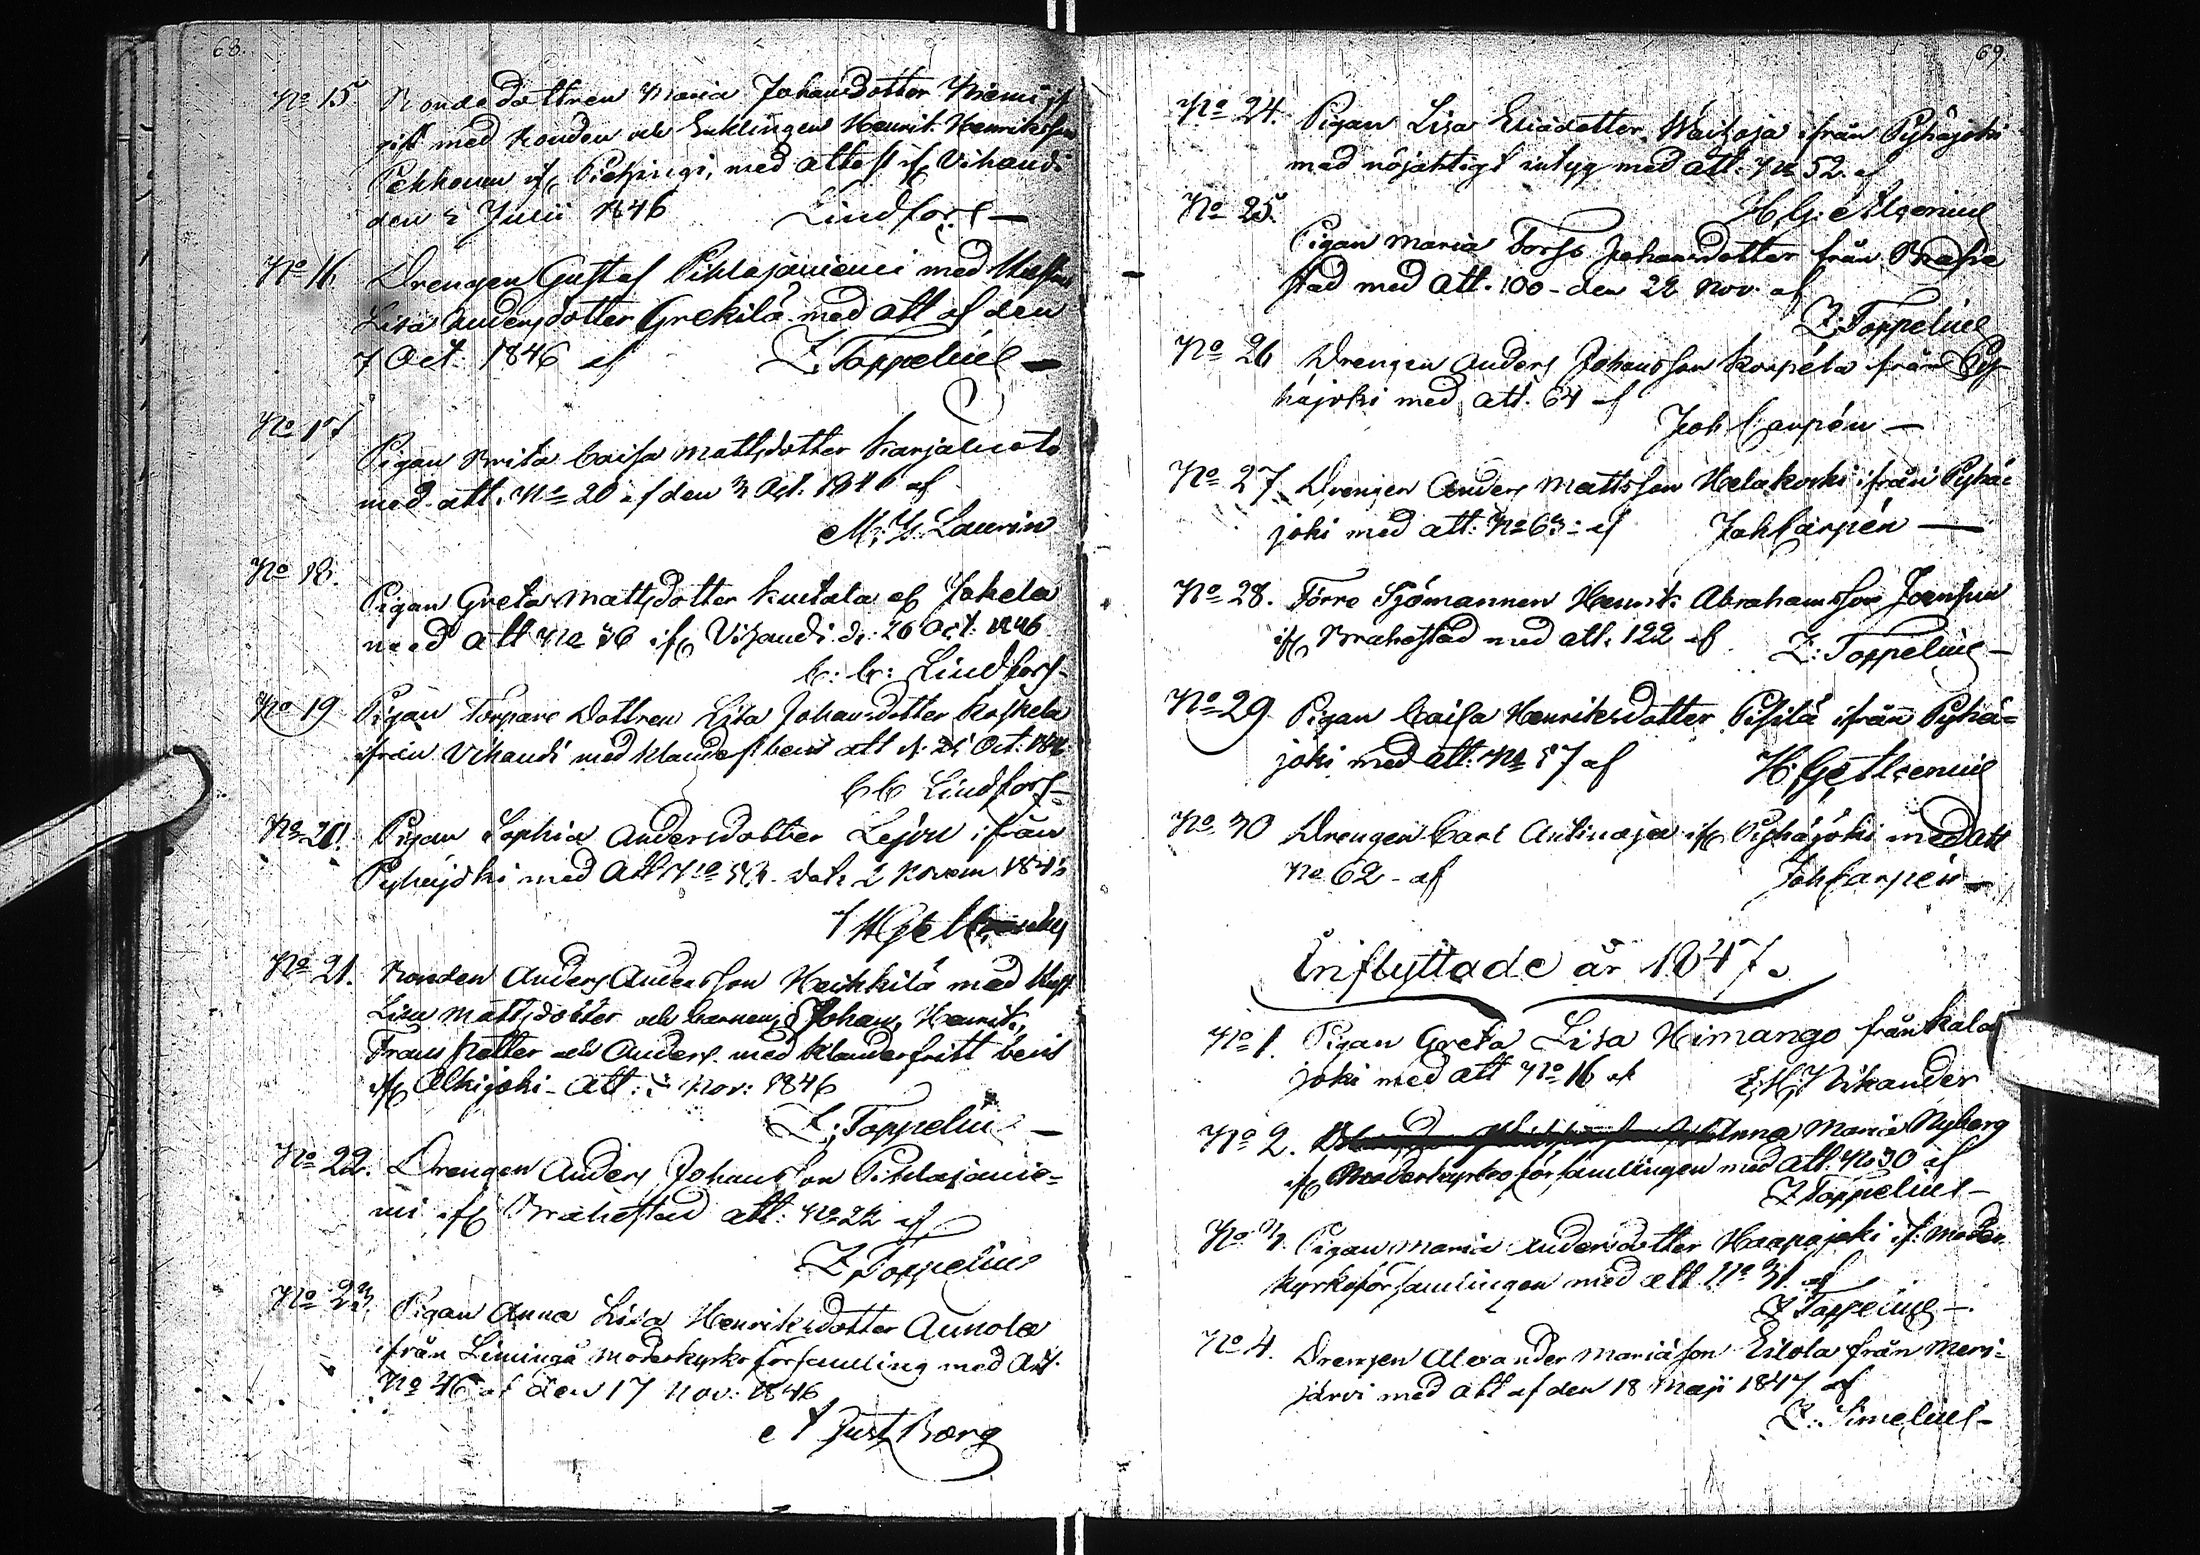 68.
No 15 Bondedottren Maria Johansdotter Niemi
gift med bonden och Enklingen Henrik Henriksson
Pekkonen ifr Piehingi, med attest ifr Vihandi
den 5 Julii 1846 Lindfors
No 16. Drengen Gustaf Pihlajaniemi med
Lisa Andersdotter Grekilä med att af den
7 Oct. 1846 af Z. Toppelius
No 17
Pigan Brita Caisa Mattsdotter Karjaluoto
med att. No 20 af den 3 Oct. 1846 af
M: G. Laurin
No 18.
Pigan Greta Mattsdotter Kustula af Jokela
med att No 36 ifr Vihandi d. 26 Oct. 1846
C: C: Lindfors
No 19 Pigan Torpare Dottren Lisa Johansdotter Koskela
ifrån Vihandi med att d. 25 Oct. 184
C C Lindfors
No 20. Pigan Sophia Andersdotter Lejvu ifrån
Pyhäjoki med Att No dat. 2 Novem 1846
No 21. Bonden Anders Andersson Heikkilä med
Lisa Mattsdotter och barnen Johan, Henrik,
Frans Petter och Anders med klanderfritt bevis
ifr Alkijoki Att: Nov: 1846
Z: Toppelius
No 22. Drengen Anders Johansson Pihlajanie=
mi ifr Brahestad att: No 22 af
Z Toppelius
No 23. Pigan Anna Lisa Henriksdotter Aunola
ifrån Limingå moderkyrko församling med Att.
No 46 af den 17 Nov. 1846
Gust Borg
69.
No 24. Pigan Lisa Eliædotter ifrån Pyhäjoki
med nöjaktigt intyg med att. No 52. af
No 25. H. G.
Pigan Maria Torso Johansdotter från Brahe
stad med Att. 100 - den 22 Nov. af
Z. Toppelius
No 26 Drengen Anders Johansson Korpela från Py
häjoki med att. 64 af
Joh Carpén
No 27. Drengen Anders Mattsson Helakoski ifrån Pyhä=
joki med att: No 63: af Joh Carpén
No 28. Förre Sjömannen Henrik Abrahamsson Joensuu
ifr Brahestad med att. 122 af Z: Toppelius
No 29 Pigan Caisa Henriksdotter Pisilä ifrån Pyhä=
joki med att. No 57 af H. G.
No 30 Drengen Carl Antinoja ifr Pyhäjoki med att
No 62 - af Joh Carpén
Inflyttade år 1847.
No 1. Pigan Greta Lisa Himango från Kala
joki med att No 16 af Wikander
No 2. Anna Maria Nyberg
ifr Moderkyrko församlingen med att. No 30 af
Z Toppelius
No 3. Pigan Maria Andersdotter Haapajoki if: Moder
kyrkoförsamlingen med att No 31 af
Z Toppelius
No 4. Drengen Alexander Mariæson Eilola från Meri=
järvi med att af den 18 Maji 1847 af
Z: Simelius